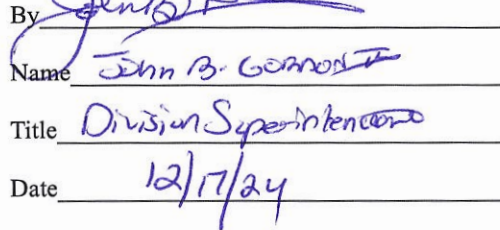 By
Name John B. Gordon III
Title Division Superintendent
Date 12/17/24